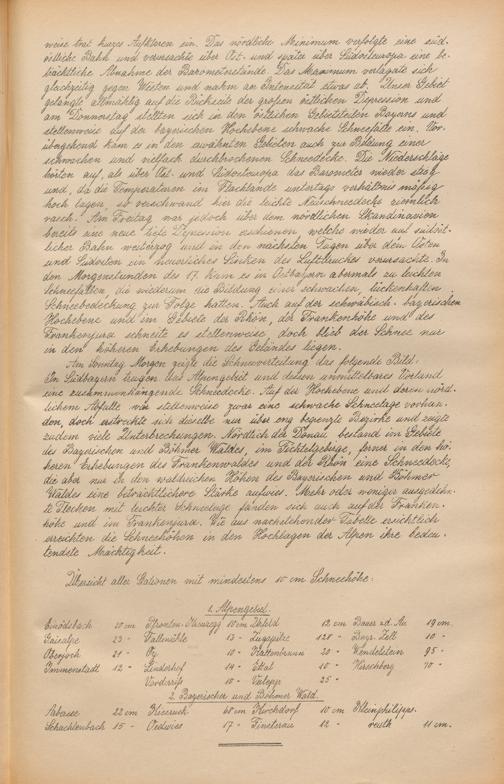 weise trat kurzes Aufklaren ein. Das nördliche Minimum verfolgte eine süd-
östliche Bahn und verursachte über Ost- und später über Südosteuropa eine be-
trächtliche Abnahme der Barometerstände. Das Maximum verlagerte sich
gleichzeitig gegen Westen und nahm an Intensität etwas ab. Unser Gebiet
gelangte allmählig auf die Rückseite der großen östlichen Depression und
am Donnerstag stellten sich in den östlichen Gebietsteilen Bayerns und
stellenweise auf der bayerischen Hochebene schwache Schneefälle ein. Vor-
übergehend kam es in den erwähnten Gebieten auch zur Bildung einer
schwachen und vielfach durchbrochenen Schneedecke. Die Niederschläge
hörten auf, als über Ost- und Südosteuropa das Barometer wieder stieg
und, da die Temperaturen im Flachlande untertags verhältnismäßig
hoch lagen, so verschwand hier die leichte Neuschneedecke ziemlich
rasch. Am Freitag war jedoch über dem nördlichen Skandinavien
bereits eine neue tiefe Depression erschienen, welche wieder auf südöst-
licher Bahn weiterzog und in den nächsten Tagen über dem Osten
und Südosten ein neuerliches Sinken des Luftdruckes verursachte. In
den Morgenstunden des 17. kam es in Ostbayern abermals zu leichten
Schneefällen, die wiederum die Bildung einer schwachen, lückenhaften
Schneebedeckung zur Folge hatten. Auch auf der schwäbisch-bayerischen
Hochebene und im Gebiete der Rhön, der Frankenhöhe und des
Frankenjura schneite es stellenweise, doch blieb der Schnee nur
in den höheren Erhebungen des Geländes liegen.
Am Sonntag Morgen zeigte die Schneeverteilung das folgende Bild:
In Südbayern trugen das Alpengebiet und dessen unmittelbares Vorland
eine zusammenhängende Schneedecke. Auf der Hochebene und deren nörd-
lichem Abfalle war stellenweise zwar eine schwache Schneelage vorhan-
den, doch erstreckte sich dieselbe nur über eng begrenzte Bezirke und zeigte
zudem viele Unterbrechungen. Nördlich der Donau bestand im Gebiete
des Bayerischen und Böhmer Waldes, im Fichtelgebirge, ferner in den hö-
heren Erhebungen des Frankenwaldes und der Rhön eine Schneedecke,
die aber nur in den waldreichen Höhen des Bayerischen und Böhmer
Waldes eine beträchtlichere Stärke aufwies. Mehr oder weniger ausgedehn-
te Flecken mit leichter Schneelage fanden sich auch auf der Franken-
höhe und im Frankenjura. Wie aus nachstehender Tabelle ersichtlich
erreichten die Schneehöhen in den Hochlagen der Alpen ihre bedeu-
tendste Mächtigkeit.
Übersicht aller Stationen mit mindestens 10 cm Schneehöhe:
1. Alpengebiet.
Einödsbach 20 cm Pfronten 10 cm 12 cm Bauer a.d. Au 19 cm.
Gaisalpe 23 - Fallmühle 13 - Zugspitze 128 - Bayr. Zell 10 -
Oberjoch 21 - Oy 10 - Kaltenbrunn 20 - Wendelstein 95 -
Immenstadt 12 - Linderhof 14 - Ettal 10 - Hirschberg 70 -
Vorderriß 10 - Valepp 25 -
2. Bayerischer und Böhmer Wald.
22 cm 68 cm Kirchdorf 10 cm Kleinphilipps-
Schachtenbach 15 - Oedwies 17 - Finsterau 12 - reuth 11 cm.